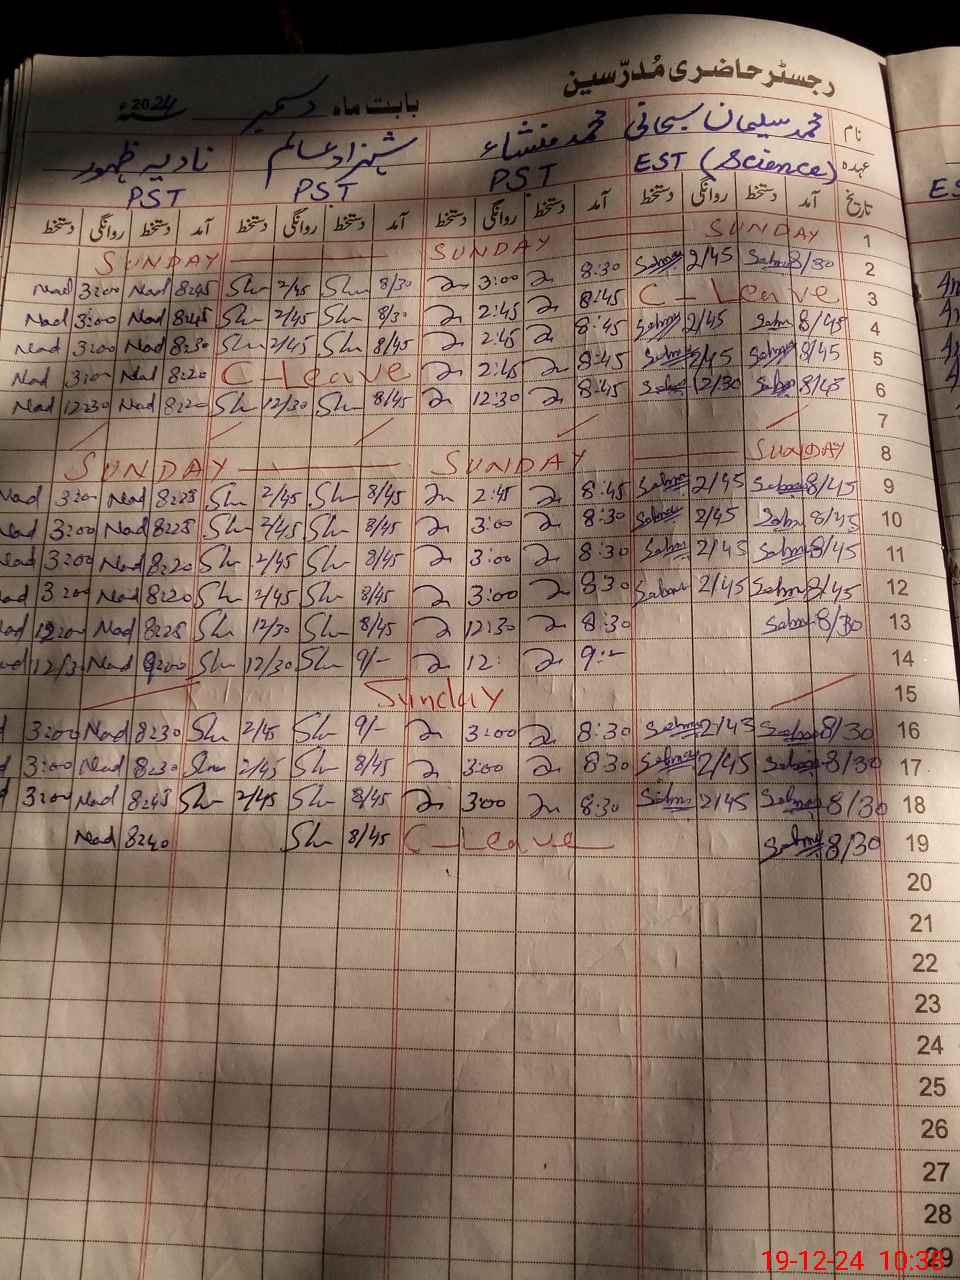 رجسٹر حاضری مُدرّسین
بابت ماہ دسمبر 2024ء
نام محمد سلیمان سبحانی محمد منشاء شہزاد عالم نادیہ ظہور
عہدہ EST (Science) PST PST PST
تاریخ آمد دستخط روانگی دستخط آمد دستخط روانگی دستخط آمد دستخط روانگی دستخط آمد دستخط روانگی دستخط
SUNDAY SUNDAY SUNDAY 1
Nad 3:00 Nad 8:45 Sh 2/45 Sh 8/30 3:00 8:30 2/45 8/30 2
Nad 3:00 Nad 8:45 Sh 2/45 Sh 8/30 2:45 8:45 C-Leave 3
Nad 3:00 Nad 8:30 Sh 2/45 Sh 8/45 2:45 8:45 2/45 8/45 4
Nad 3:00 Nad 8:20 C-Leave 2:45 8:45 2/45 8/45 5
Nad 12:30 Nad 8:20 Sh 12/30 Sh 8/45 12:30 8:45 12/30 8/45 6
7
SUNDAY SUNDAY SUNDAY 8
Nad 3:00 Nad 8:25 Sh 2/45 Sh 8/45 2:45 8:45 2/45 8/45 9
Nad 3:00 Nad 8:25 Sh 2/45 Sh 8/45 3:00 8:30 2/45 8/45 10
Nad 3:00 Nad 8:20 Sh 2/45 Sh 8/45 3:00 8:30 2/45 8/45 11
3:00 Nad 8:20 Sh 2/45 Sh 8/45 3:00 8:30 2/45 8/45 12
12:00 Nad 8:25 Sh 12/30 Sh 8/45 12:30 8:30 8/30 13
12/3 Nad 9:00 Sh 12/30 Sh 9/- 12: 9:- 14
Sunday 15
3:00 Nad 8:30 Sh 2/45 Sh 9/- 3:00 8:30 2/45 8/30 16
3:00 Nad 8:30 Sh 2/45 Sh 8/45 3:00 8:30 2/45 8/30 17
3:00 Nad 8:45 Sh 2/45 Sh 8/45 3:00 8:30 2/45 8/30 18
Nad 8:40 Sh 8/45 C-Leave 8/30 19
20
21
22
23
24
25
26
27
28
29
19-12-24 10:38